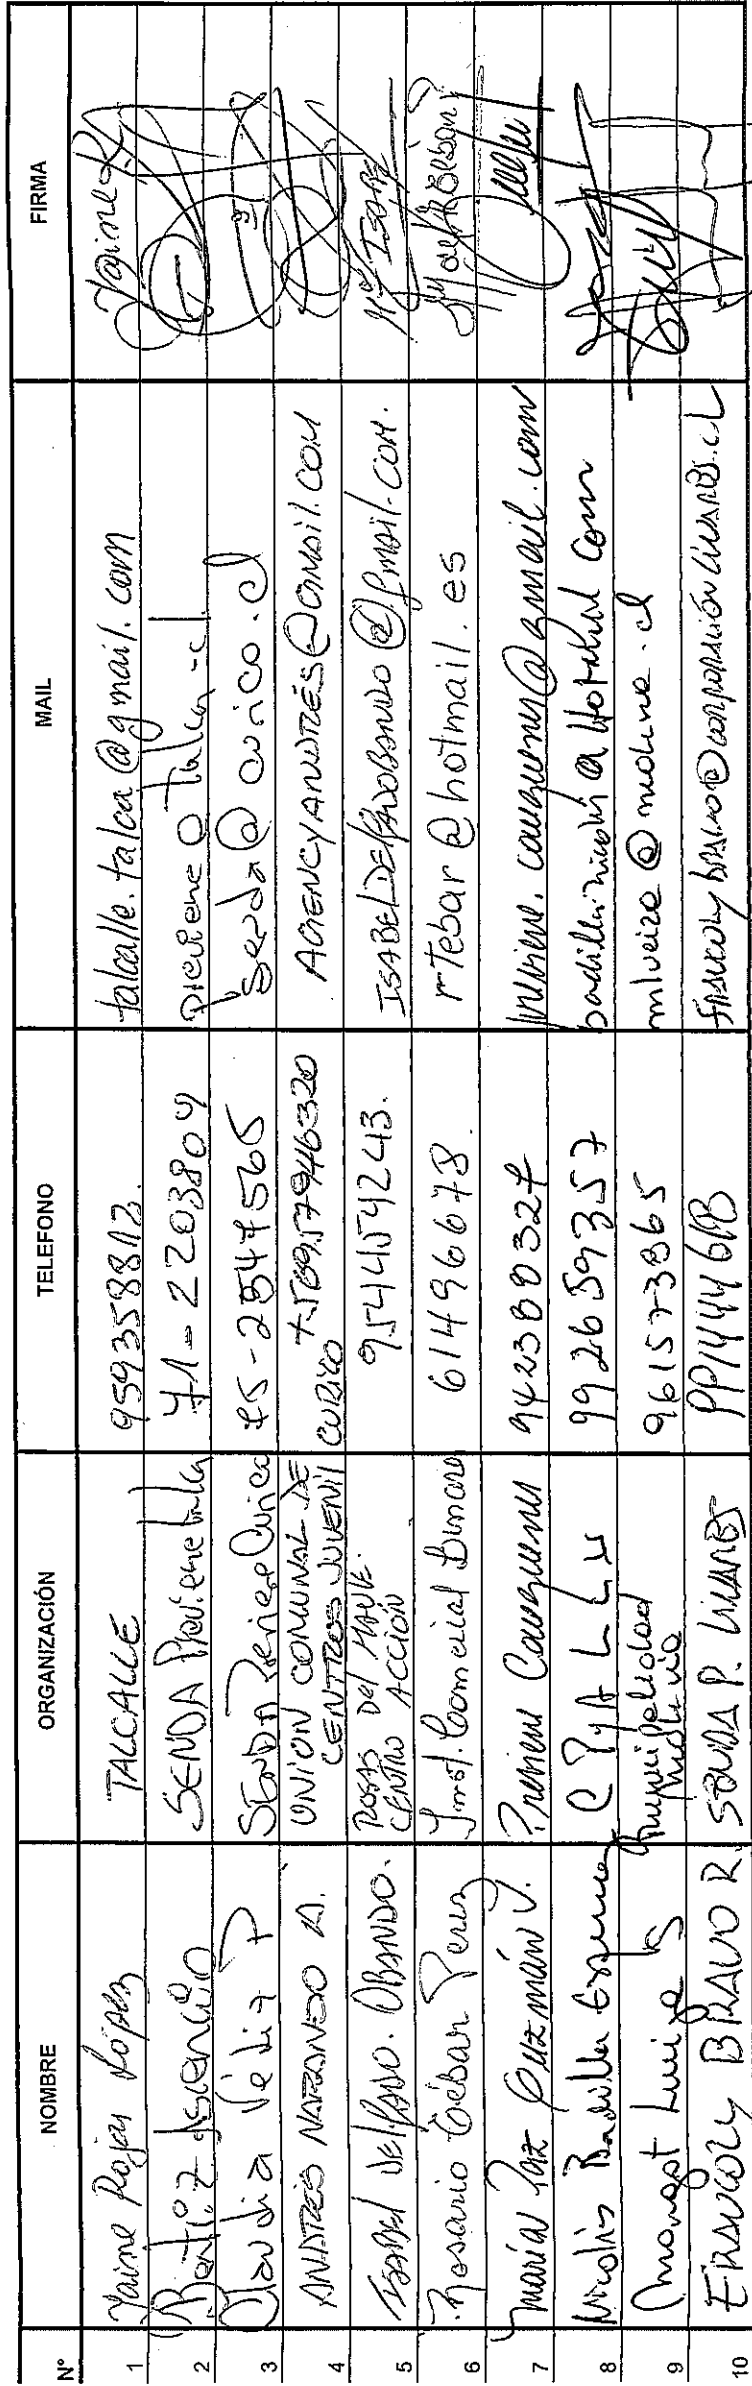 N° NOMBRE ORGANIZACIÓN TELEFONO MAIL FIRMA
1 Yaine Rojas López TALCALLE 959358812. talcalle.talca@gmail.com Yaine R
2 Beatriz Asencio SENDA Previene talca 71-2203804 previene@talca.cl
3 Claudia Véliz P SENDA Previene Curico 75-2547565 Senda@curico.cl
4 ANDRÉS NARANJO A. UNIÓN COMUNAL DE CENTROS JUVENIL CURICO +56957946320 AGENCYANDRES@GMAIL.COM
5 ISABEL DELGADO. OBANDO. ROSAS DEL MAULE. CENTRO ACCIÓN 954454243. ISABELDELGADOBANDO@gmail.com. Mª ISABEL
6 Rosario Tébar Perez Inst. Comercial Linares 61496678. rTebar@hotmail.es
7 María Paz Guzmán V. Previene Cauquenes 942380327 previene.cauquenes@gmail.com
8 Nicolás Badilla 992659357 badilla.nicolas@Hotmail.com
9 Margot Municipalidad Molina 961573865 @molina.cl
10 FRANCOLY BRAVO R. SENDA P. LINARES francoly.bravo@corporaciónlinares.cl